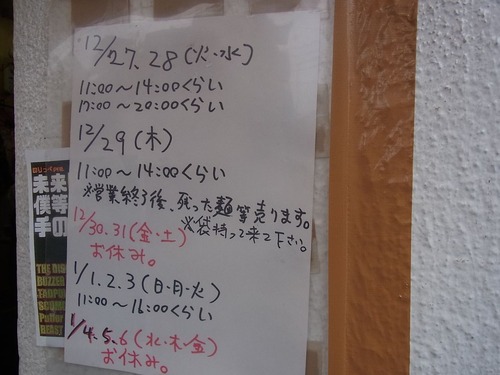 12/27.28(火・水)
11:00～14:00くらい
17:00～20:00くらい
12/29(木)
11:00～14:00くらい
※営業終了後、残った麺等売ります。
※袋持って来て下さい。
12/30.31(金・土)
お休み。
1/1.2.3(日・月・火)
11:00～16:00くらい
1/4.5.6(水・木・金)
お休み。
未来
僕等
手の